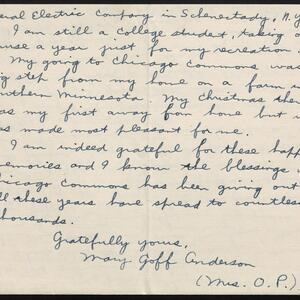 eral Electric Company in Schenectady, N.Y
I am still a college student, taking
urse a year just for my recreation
My going to Chicago Commons was
ig step from my home on a farm in
uthern Minnesota. My Christmas there
as my first away from home but
as made most pleasant for me.
I am indeed grateful for these happ
emories and I know the blessings
hicago Commons has been giving out
ll these years have spread to countless
thousands.
Gratefully yours,
Mary Goff Anderson
(Mrs. O. P.)